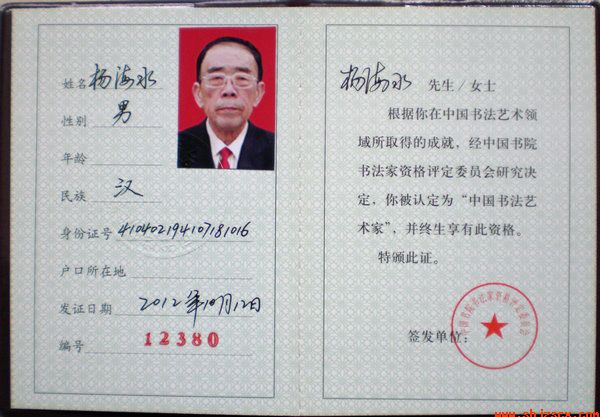 姓名 杨海水
性别 男
年龄
民族 汉
身份证号 410402194107181016
户口所在地
发证日期 2012年10月12日
编号 12380
杨海水 先生/女士
根据你在中国书法艺术领
域所取得的成就，经中国书院
书法家资格评定委员会研究决
定，你被认定为“中国书法艺
术家”，并终生享有此资格。
特颁此证。
签发单位：
中国书院书法家资格评定委员会